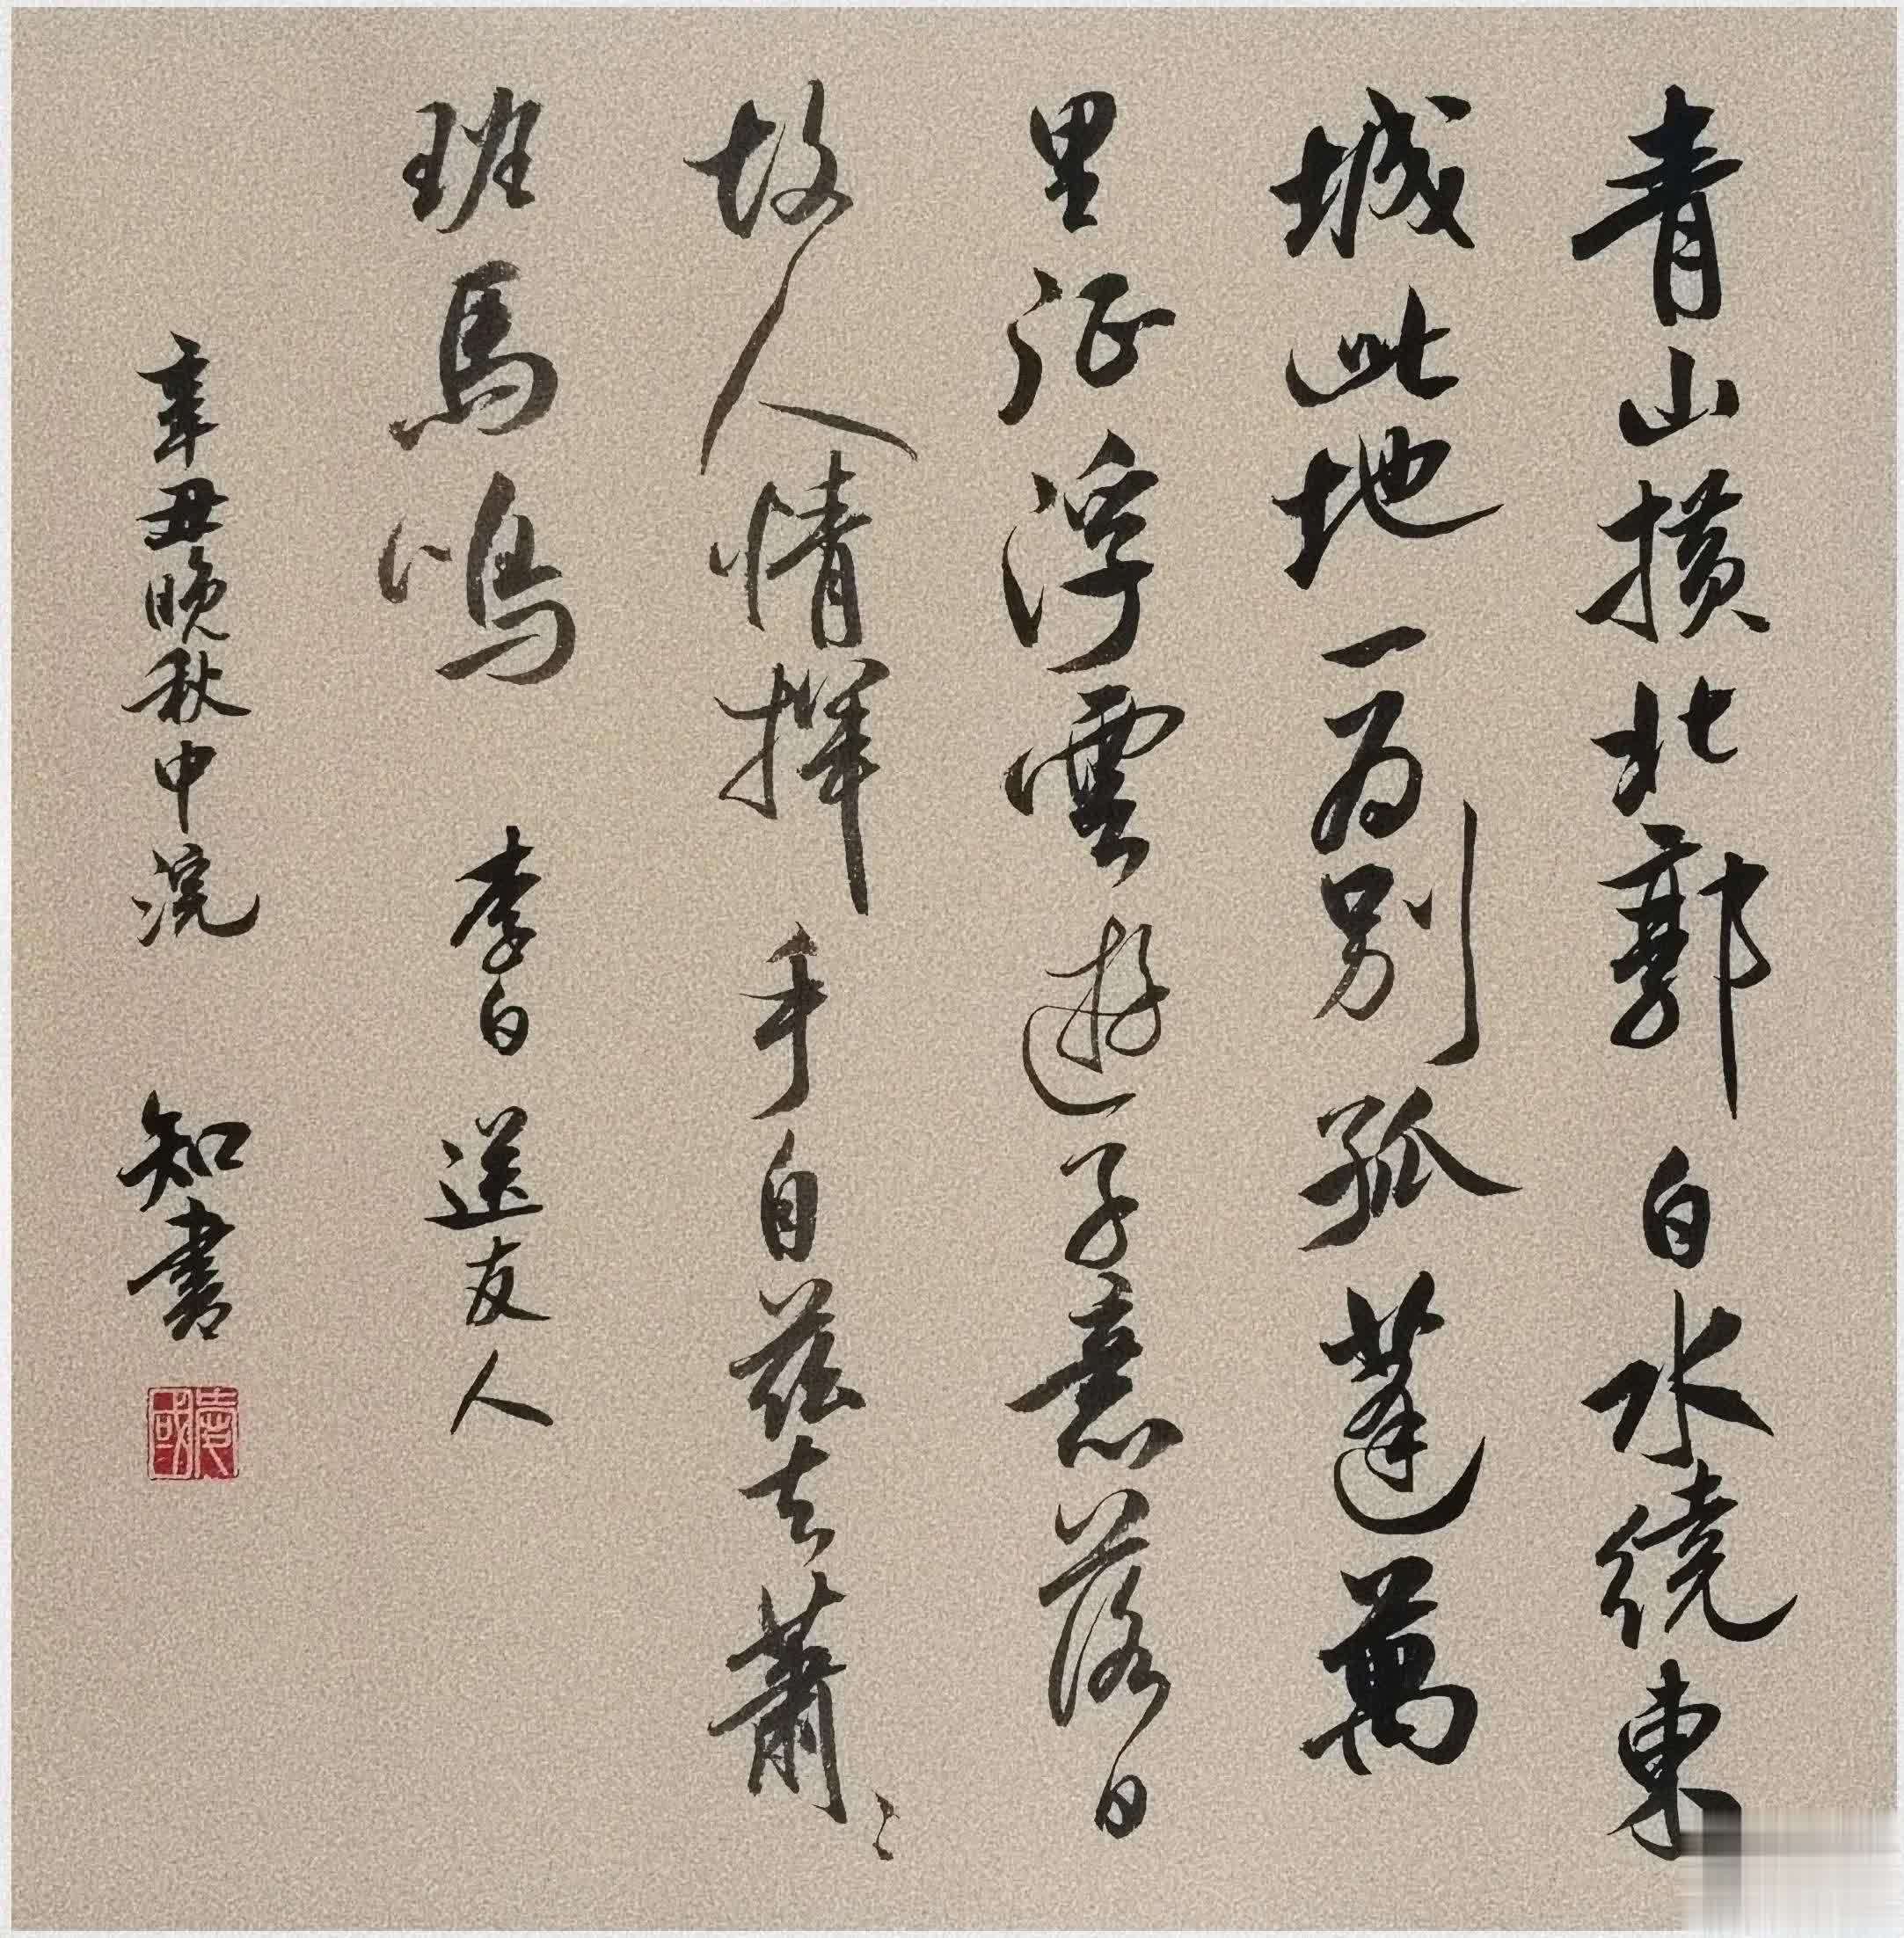 青山横北郭白水繞東
城此地一为别孤蓬萬
里征浮雲遊子意落日
故人情揮手自茲去蕭〻
班馬鳴
李白送友人
辛丑晚秋中浣
知書